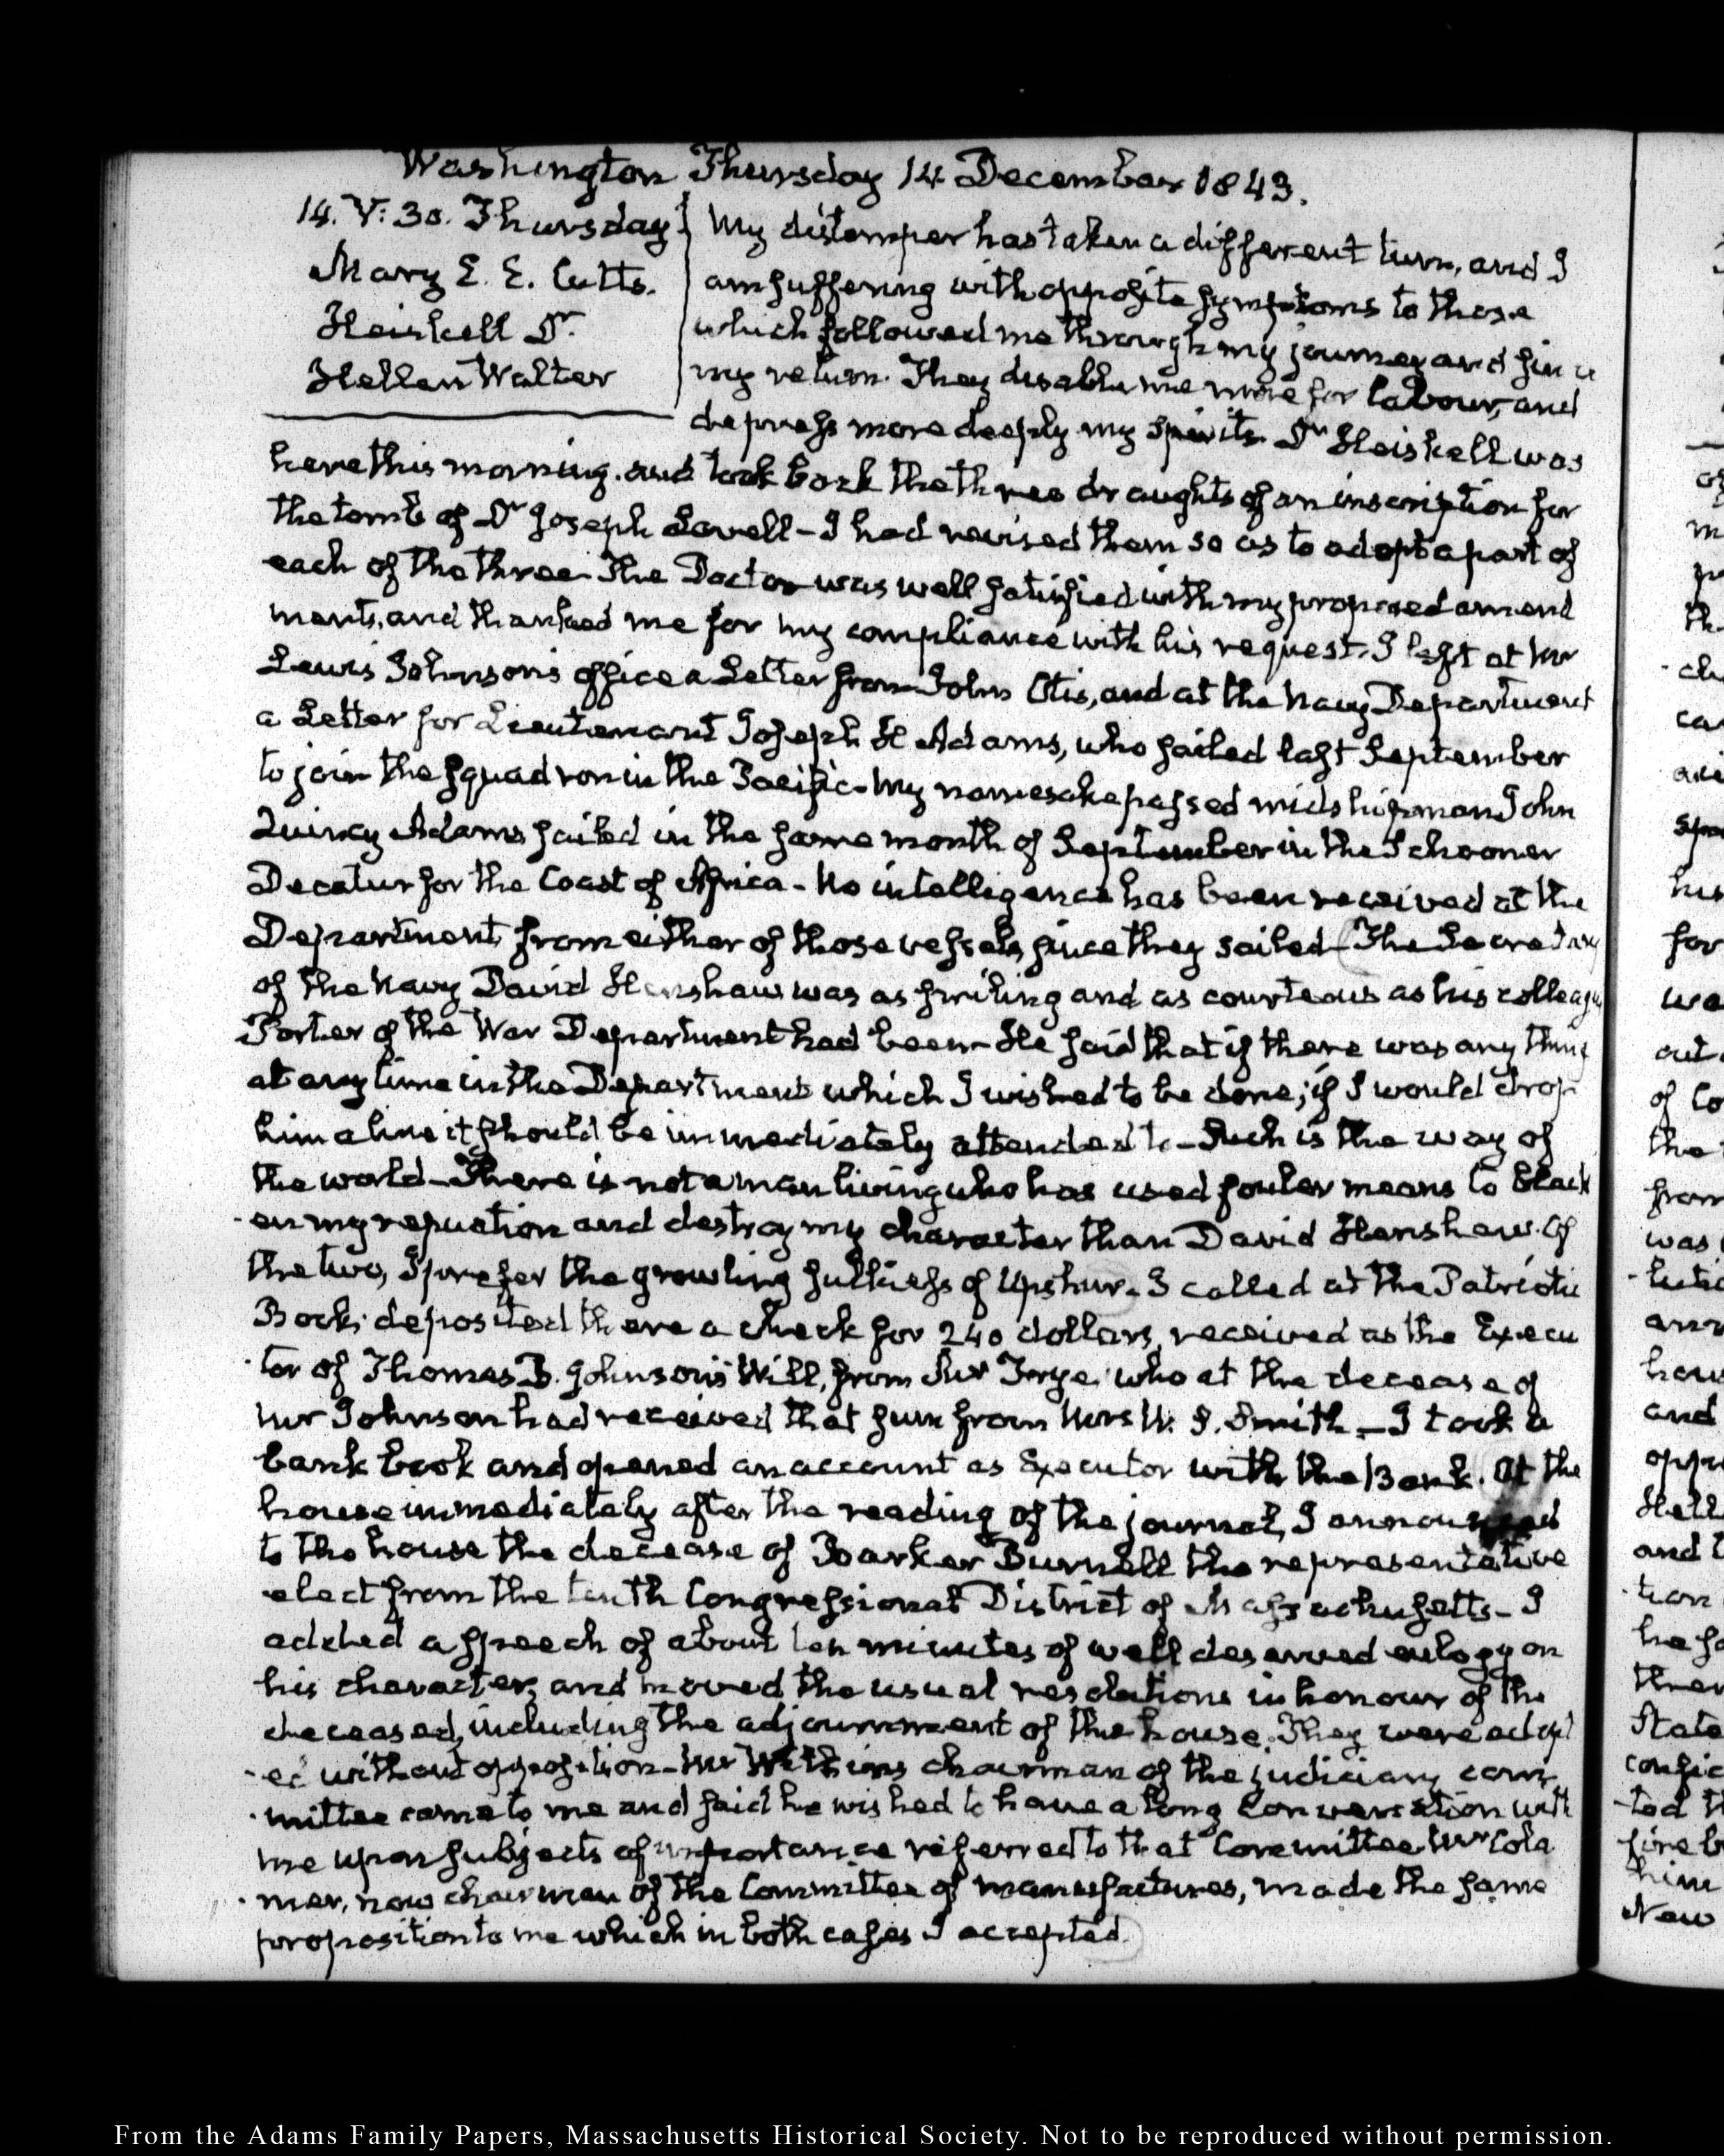 Washington Thursday 14 December 1843.
14. V:30. Thursday
Mary E. E. Cutts.
Heiskell Dr.
Hellen Walter
My distemper has taken a different turn, and I
am suffering with opposite symptoms to those
which followed me through my journey and since
my return. They disable me more for labour, and
depress more deeply my spirits. Dr Heiskell was
here this morning. and took back the three draughts of an inscription for
the tomb of Dr Joseph Lovell – I had revised them so as to adopt a part of
each of the three. The Doctor was well satisfied with my proposed amend
ments, and thanked me for my compliance with his request. I left at Mr
Lewis Johnson's office a Letter from John Otis, and at the Navy Department
a Letter for Lieutenant Joseph H Adams, who sailed last September
to join the squadron in the Pacific – My namesake passed midshipman John
Quincy Adams sailed in the same month of September in the Schooner
Decatur for the Coast of Africa – No intelligence has been received at the
Department from either of those vessels since they sailed – The Secretary
of the Navy David Henshaw was as smiling and as courteous as his colleague
Porter of the War Department had been – He said that if there was any thing
at any time in the Department which I wished to be done; if I would drop
him a line it should be immediately attended to – Such is the way of
the world – There is not a man living who has used fouler means to black
-en my repuation and destroy my character than David Henshaw. Of
the two, I prefer the growling sulkiness of Upshur. – I called at the Patriotic
Bank; deposited there a check for 240 dollars, received as the Execu
-tor of Thomas B. Johnson's Will, from Mr Frye who at the decease of
Mr Johnson had received that sum from Mrs W. S. Smith – I took a
bank book and opened an account as Executor with the Bank. At the
house immediately after the reading of the journal, I announced
to the house the decease of Barker Burnell the representative
elect from the tenth Congressional District of Massachusetts – I
added a speech of about ten minutes of well deserved eulogy on
his character, and moved the usual resolutions in honour of the
deceased, including the adjournment of the house. They were adopt
-ed without opposition – Mr Wilkins chairman of the judiciary com
-mittee came to me and said he wished to have a long conversation with
me upon subjects of importance referred to that Committee Mr Cola
-mer, now chairman of the Committee of manufactures, made the same
proposition to me which in both cases I accepted.
From the Adams Family Papers, Massachusetts Historical Society. Not to be reproduced without permission.